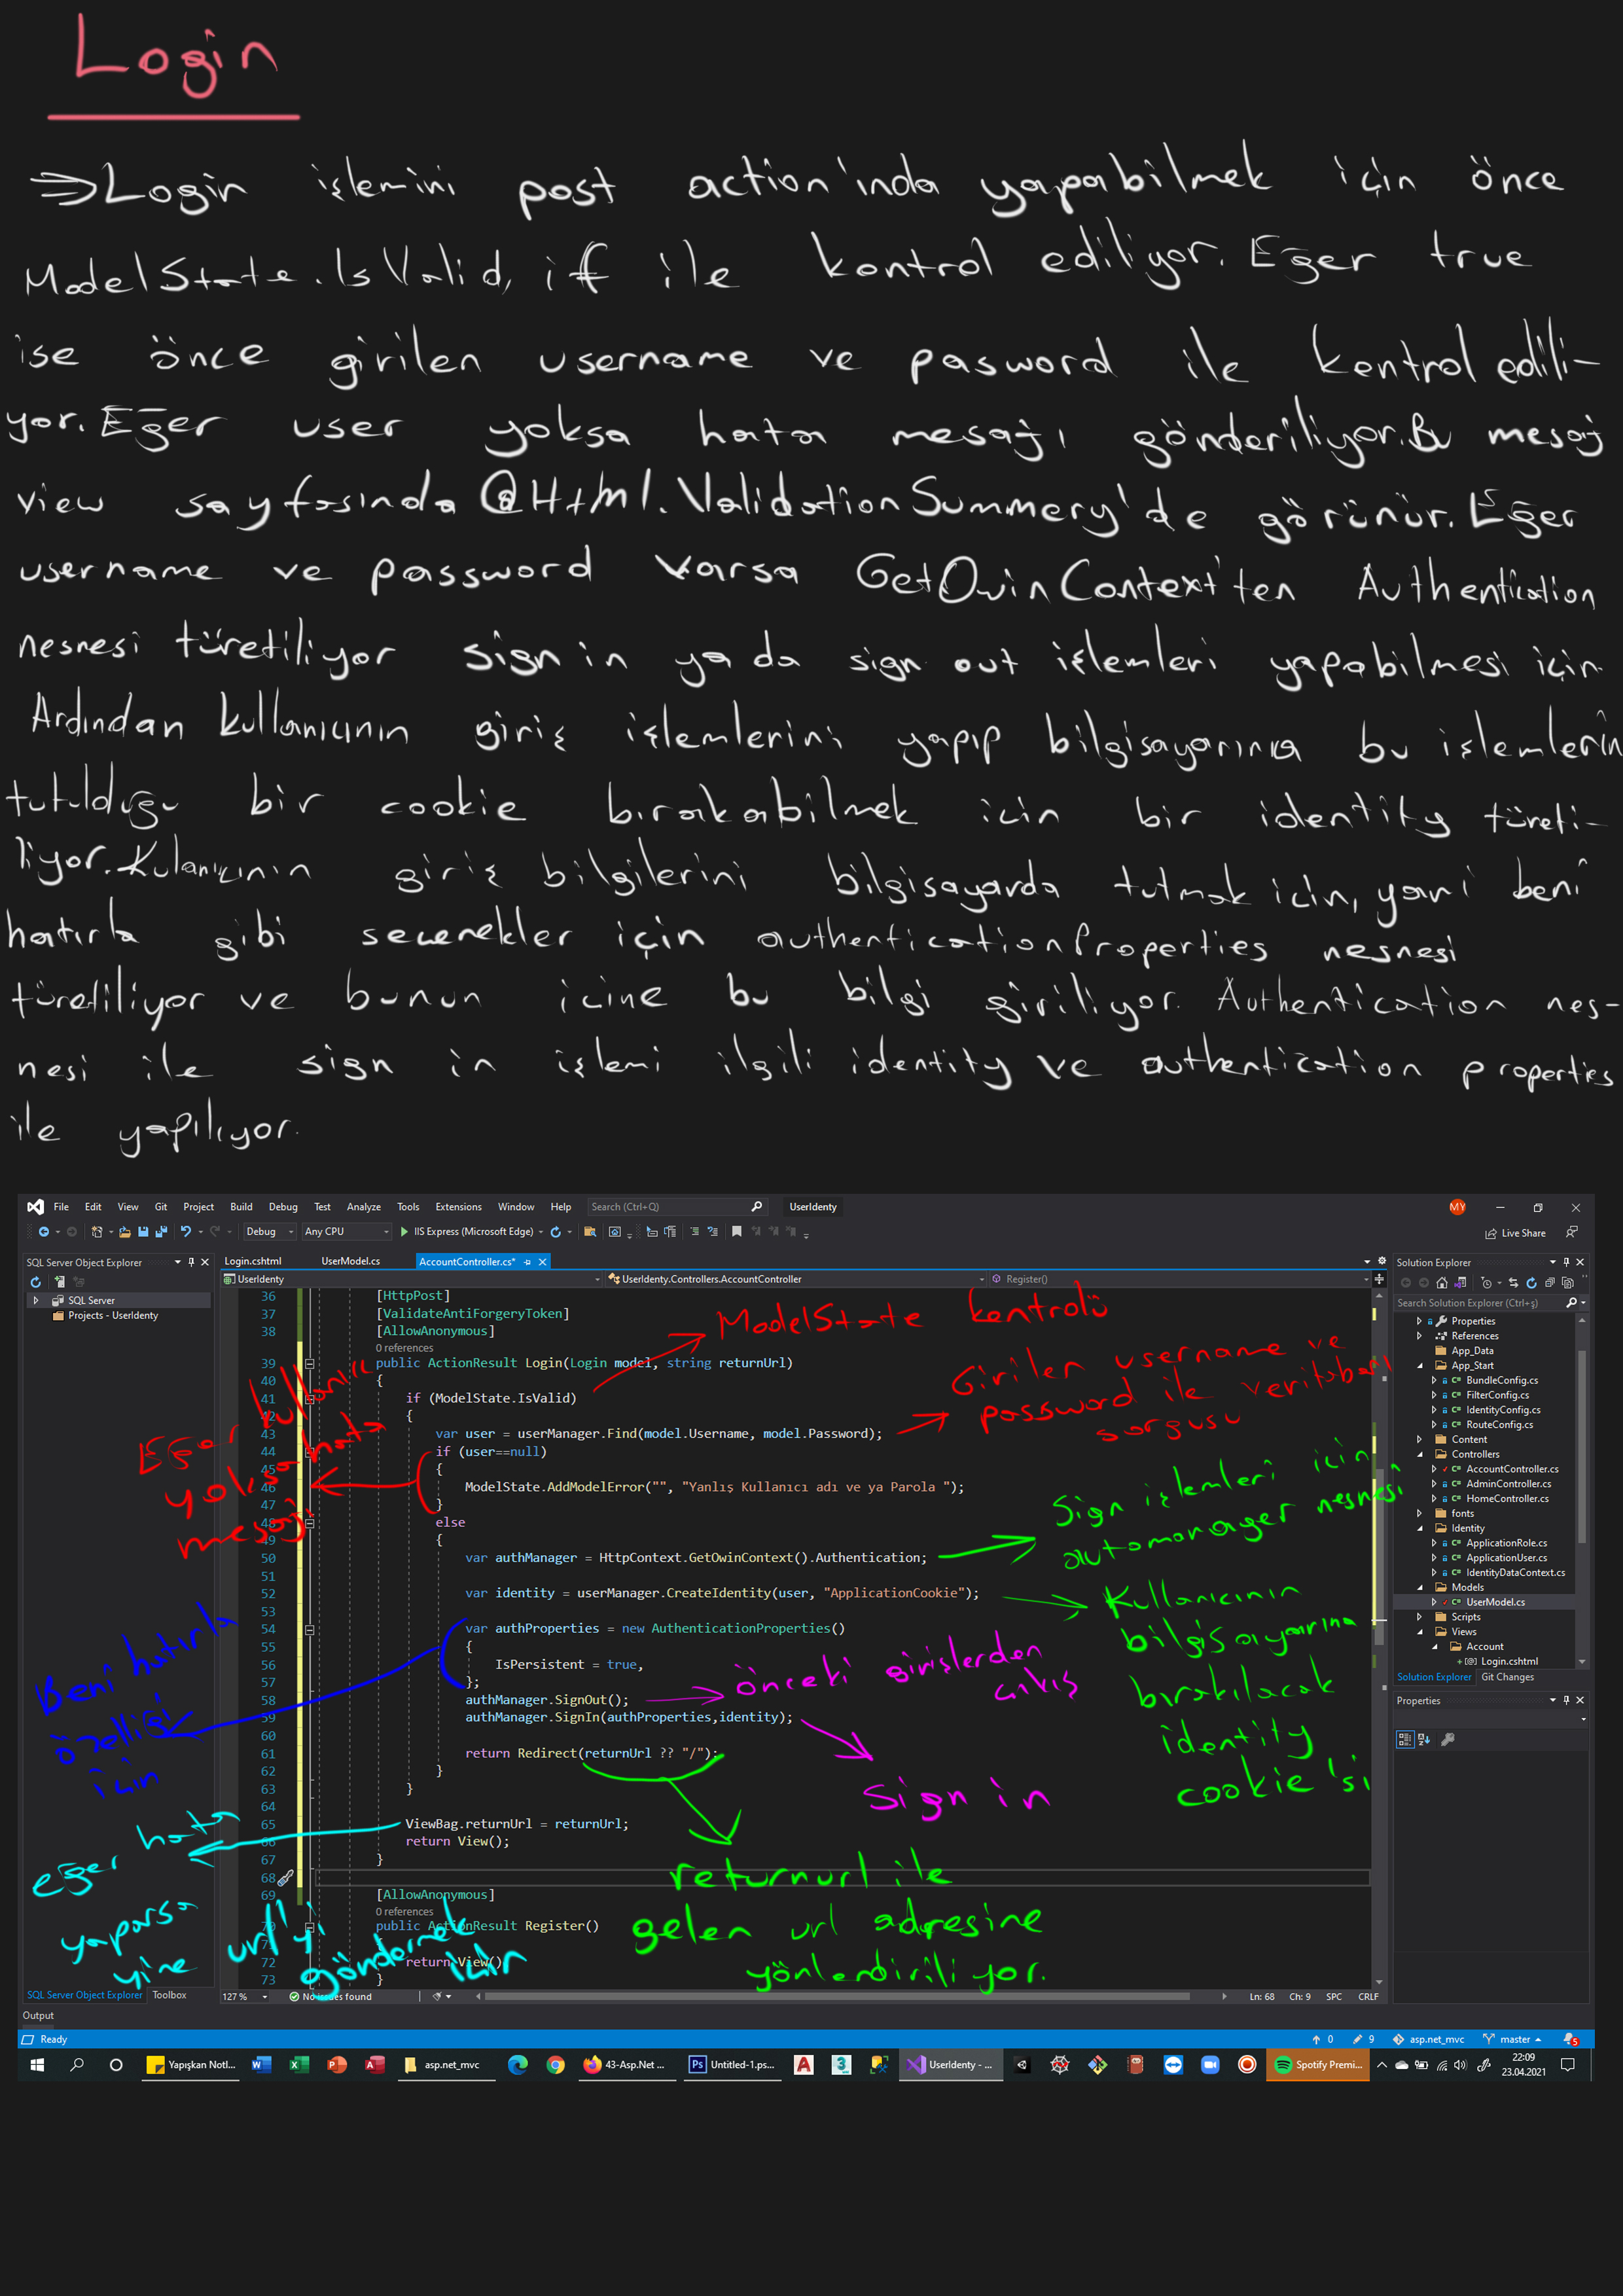 Login
⇒Login işlemini post action'ında yapabilmek için önce
ModelState.IsValid, if ile kontrol ediliyor. Eğer true
ise önce girilen username ve pasword ile kontrol edili-
yor. Eğer user yoksa hata mesajı gönderiliyor. Bu mesaj
view sayfasında @Html.ValidationSummery'de görünür. Eğer
username ve password varsa GetOwinContext'ten Authentication
nesnesi türetiliyor sign in ya da sign out işlemleri yapabilmesi için.
Ardından kullanıcının giriş işlemlerini yapıp bilgisayarına bu işlemlerin
tutulduğu bir cookie bırakabilmek icin bir identity türeti-
liyor. Kulanıcının giriş bilgilerini bilgisayarda tutmak icin, yani beni
hatırla gibi secenekler için authenticationProperties nesnesi
türetiliyor ve bunun icine bu bilgi giriliyor. Authentication nes-
nesi ile sign in işlemi ilgili identity ve authentication properties
ile yapılıyor.
File Edit View Git Project Build Debug Test Analyze Tools Extensions Window Help Search (Ctrl+Q) UserIdenty MY
Debug Any CPU IIS Express (Microsoft Edge) Live Share
SQL Server Object Explorer
SQL Server
Projects - UserIdenty
Login.cshtml UserModel.cs AccountController.cs*
UserIdenty UserIdenty.Controllers.AccountController Register()
36 [HttpPost]
37 [ValidateAntiForgeryToken]
38 [AllowAnonymous]
0 references
39 public ActionResult Login(Login model, string returnUrl)
40 {
41 if (ModelState.IsValid)
42 {
43 var user = userManager.Find(model.Username, model.Password);
44 if (user==null)
45 {
46 ModelState.AddModelError("", "Yanlış Kullanıcı adı ve ya Parola ");
47 }
48 else
49 {
50 var authManager = HttpContext.GetOwinContext().Authentication;
51
52 var identity = userManager.CreateIdentity(user, "ApplicationCookie");
53
54 var authProperties = new AuthenticationProperties()
55 {
56 IsPersistent = true,
57 };
58 authManager.SignOut();
59 authManager.SignIn(authProperties,identity);
60
61 return Redirect(returnUrl ?? "/");
62 }
63 }
64
65 ViewBag.returnUrl = returnUrl;
66 return View();
67 }
68
69 [AllowAnonymous]
0 references
70 public ActionResult Register()
72 return View()
73 }
ModelState kontrolü
Girilen username ve
password ile veritabanı
sorgusu
Eğer kullanıcı
yoksa hata
mesajı
Sign işlemleri icin
automanager nesnesi
Kullanıcının
bilgisayarına
bırakılacak
identity
cookie'si
Beni hatırla
özelliği
icin
önceki girişlerden
çıkış
Sign in
returnurl ile
gelen url adresine
yönlendiriliyor.
eğer hata
yaparsa
yine url'i
göndermek
icin
Solution Explorer
Search Solution Explorer (Ctrl+ş)
Properties
References
App_Data
App_Start
BundleConfig.cs
FilterConfig.cs
IdentityConfig.cs
RouteConfig.cs
Content
Controllers
AccountController.cs
AdminController.cs
HomeController.cs
fonts
Identity
ApplicationRole.cs
ApplicationUser.cs
IdentityDataContext.cs
Models
UserModel.cs
Scripts
Views
Account
Login.cshtml
Solution Explorer Git Changes
Properties
SQL Server Object Explorer Toolbox
127 % No issues found Ln: 68 Ch: 9 SPC CRLF
Output
Ready 0 9 asp.net_mvc master 5
Yapışkan Notl... asp.net_mvc 43-Asp.Net ... Untitled-1.ps... UserIdenty - ... Spotify Premi... 22:09
23.04.2021